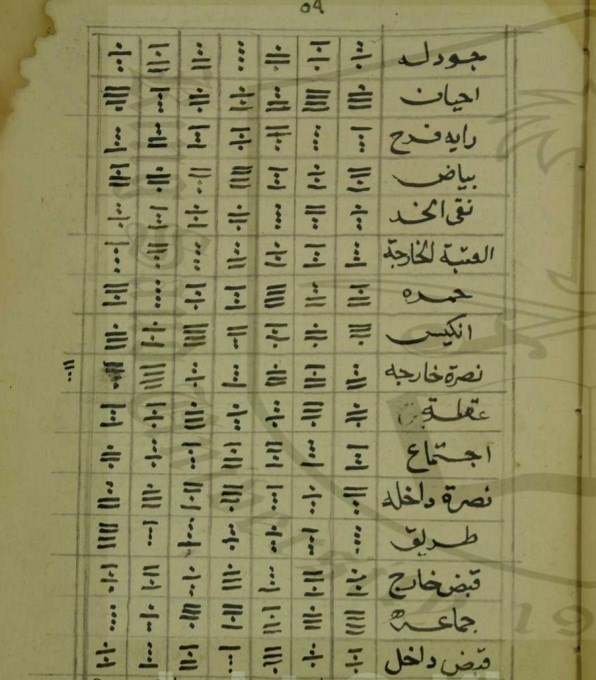 ٥٩
جودله
احيان
رايه فرح
بياض
نقى الخد
العتبة الخارجة
حمره
انكيس
نصرة خارجه
عقلة
اجتماع
نصرة داخله
طريق
قبض خارج
جماعه
قبض داخل